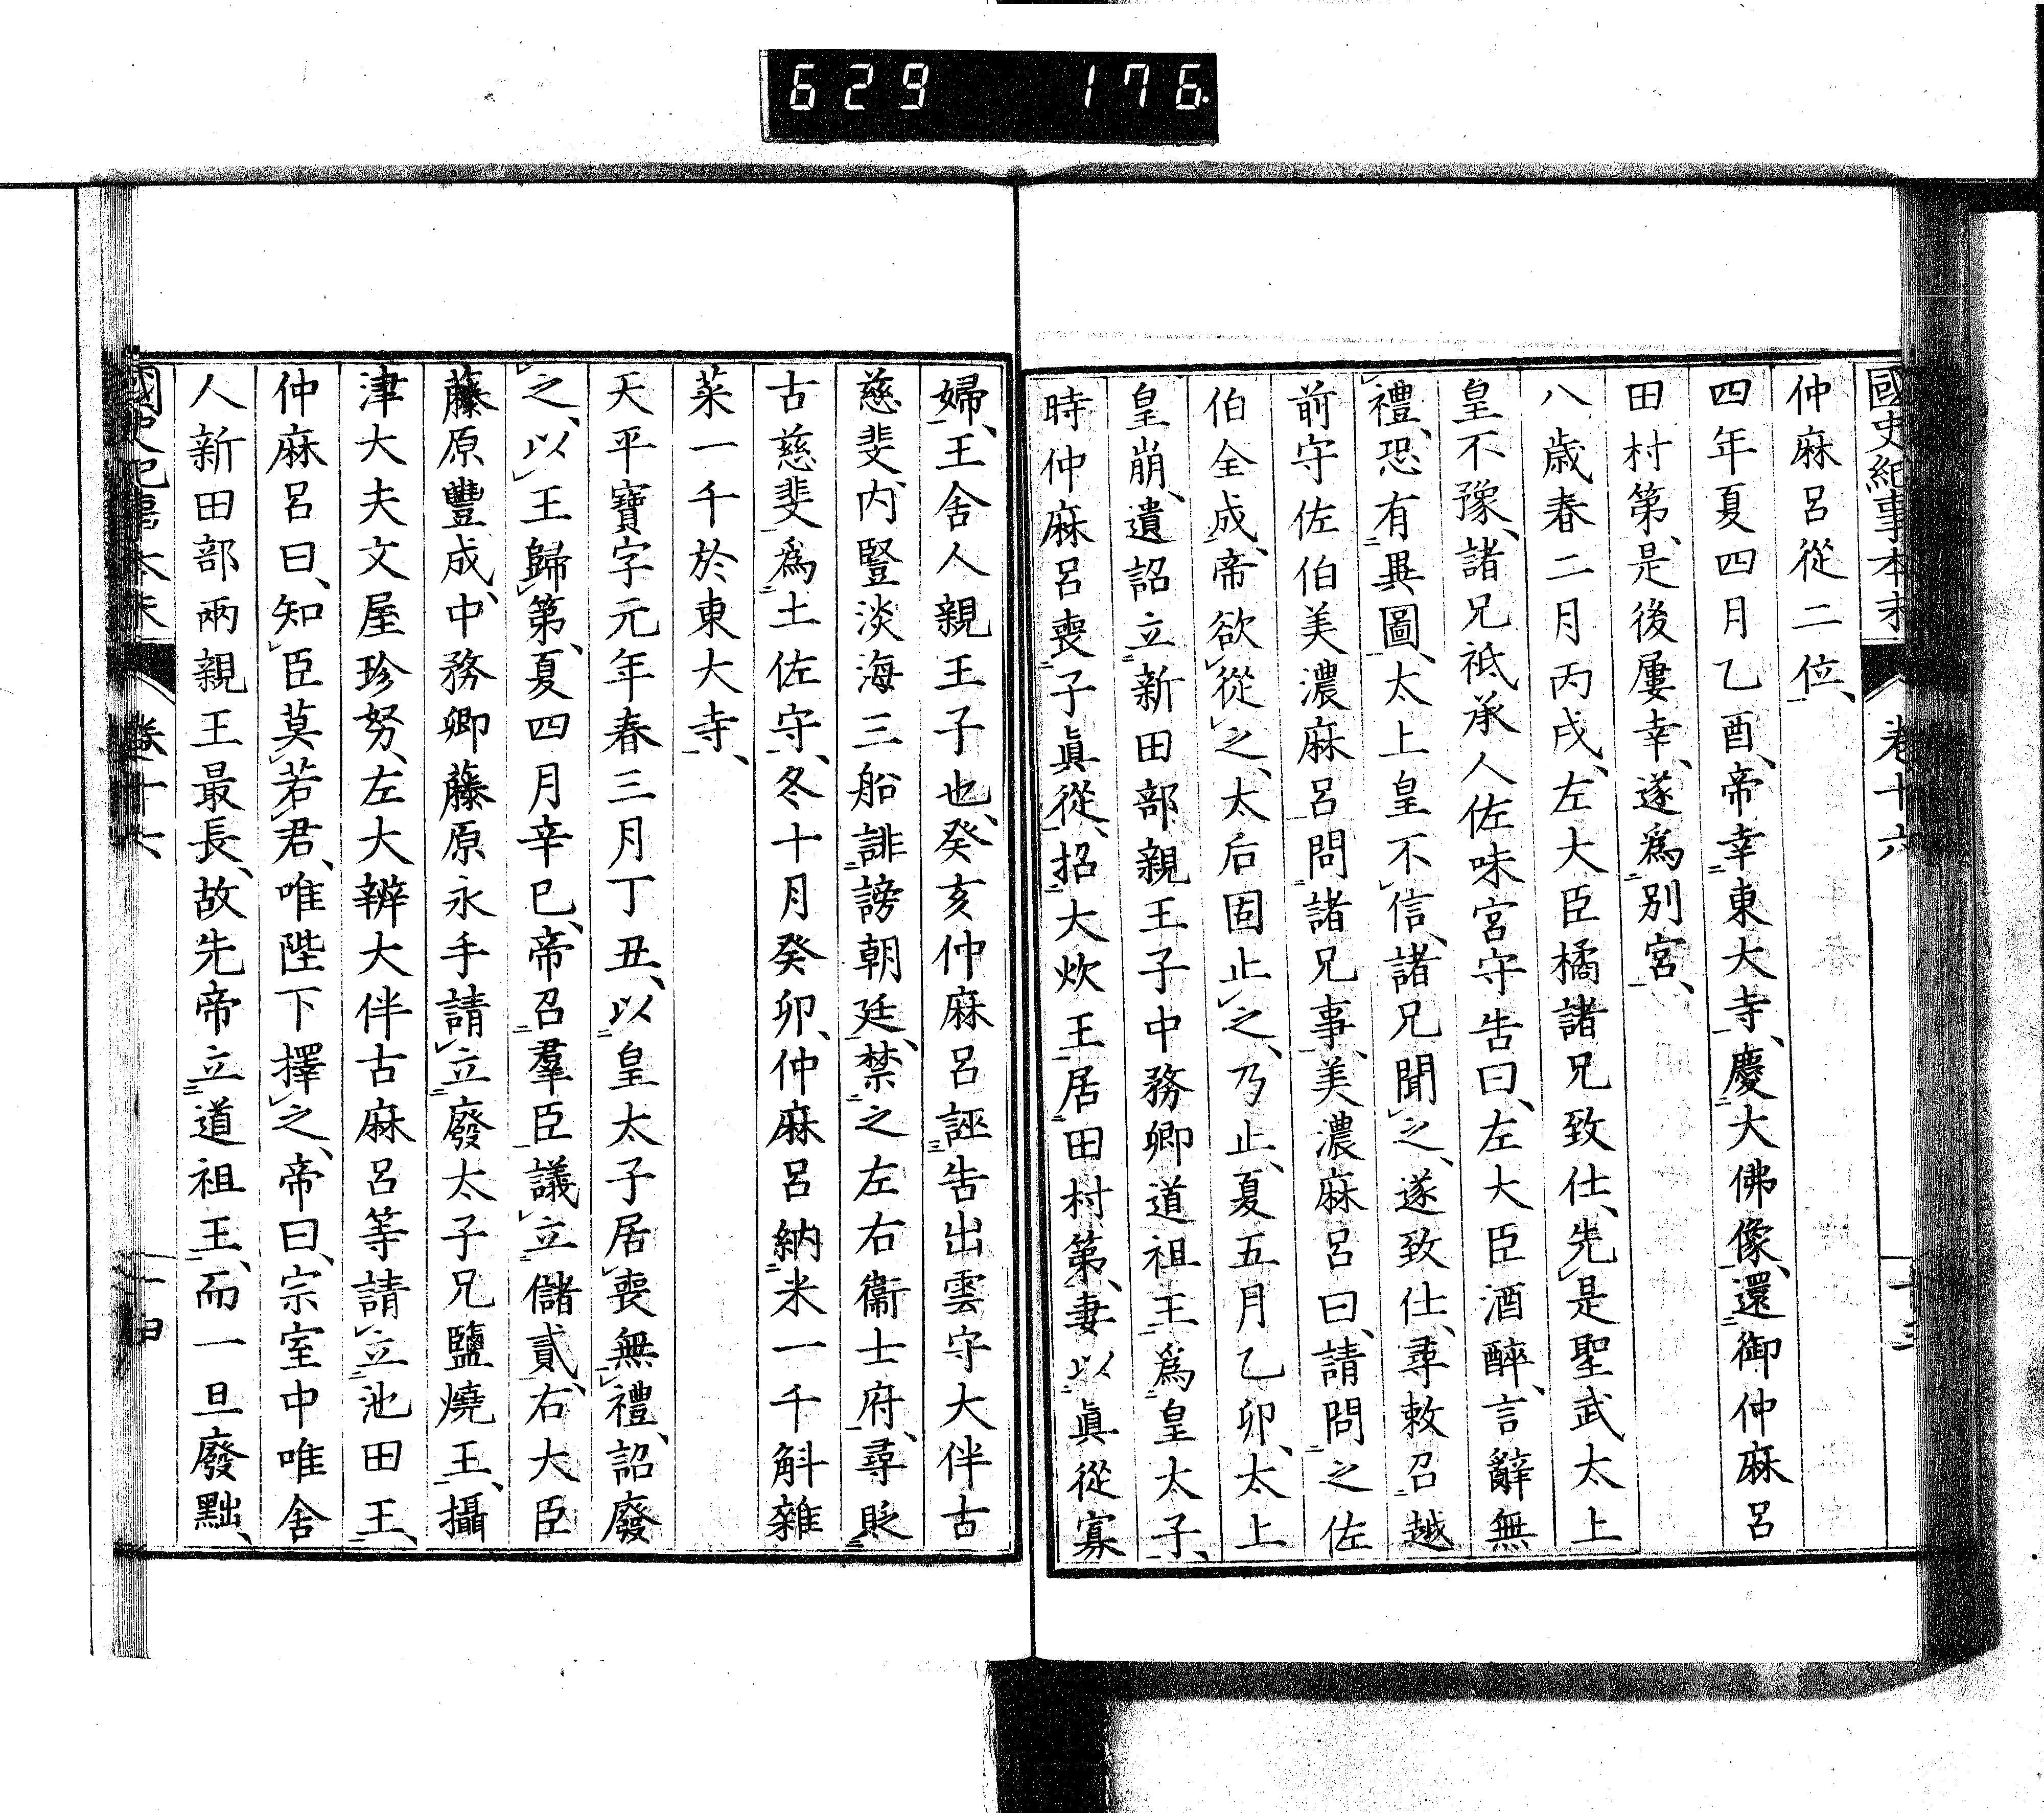 629 176.
國史紀事本末 卷十六 十三
仲麻呂從二位、
四年夏四月乙酉、帝幸東大寺、慶大佛像、還御仲麻呂
田村第、是後屢幸、遂爲別宮、
八歲春二月丙戌、左大臣橘諸兄致仕、先是聖武太上
皇不豫、諸兄祗承人佐味宮守告曰、左大臣酒醉、言辭無
禮、恐有異圖、太上皇不信、諸兄聞之、遂致仕、尋敕召越
前守佐伯美濃麻呂問諸兄事、美濃麻呂曰、請問之佐
伯全成、帝欲從之、太后固止之、乃止、夏五月乙卯、太上
皇崩、遺詔立新田部親王子中務卿道祖王爲皇太子、
時仲麻呂喪子眞從、招大炊王居田村第、妻以眞從寡
婦、王舍人親王子也、癸亥仲麻呂誣告出雲守大伴古
慈斐、內豎淡海三船誹謗朝廷、禁之左右衞士府、尋貶
古慈斐爲土佐守、冬十月癸卯、仲麻呂納米一千斛雜
菜一千於東大寺、
天平寶字元年春三月丁丑、以皇太子居喪無禮、詔廢
之、以王歸第、夏四月辛巳、帝召羣臣議立儲貳、右大臣
藤原豐成、中務卿藤原永手請立廢太子兄鹽燒王、攝
津大夫文屋珍努、左大辨大伴古麻呂等請立池田王、
仲麻呂曰、知臣莫若君、唯陛下擇之、帝曰、宗室中唯舍
人新田部兩親王最長、故先帝立道祖王、而一旦廢黜、
國史紀事本末 卷十六 十四